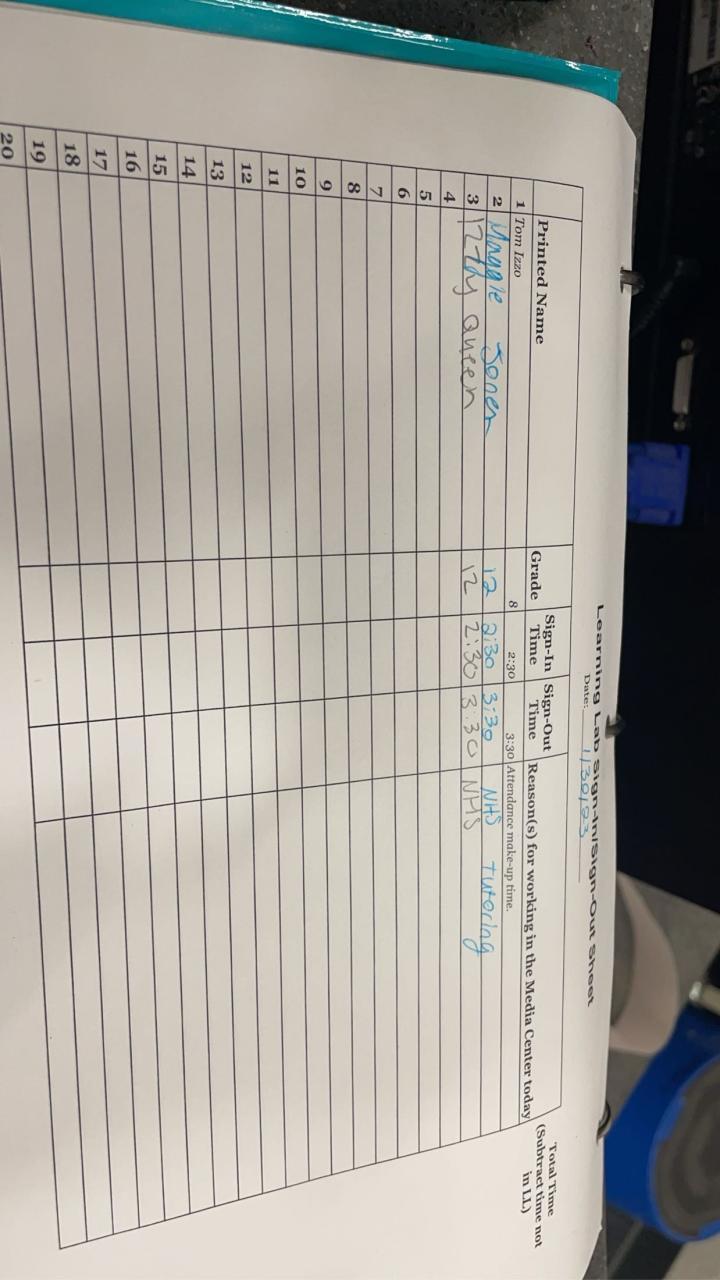 Learning Lab Sign-In/Sign-Out Sheet
Date: 1/30/23
Printed Name Grade Sign-In Time Sign-Out Time Reason(s) for working in the Media Center today Total Time (Subtract time not in LL)
1 Tom Izzo 8 2:30 3:30 Attendance make-up time.
2 Maggie Jones 12 2:30 3:30 NHS Tutoring
3 Queen 12 2:30 3:30 NHS
4
5
6
7
8
9
10
11
12
13
14
15
16
17
18
19
20